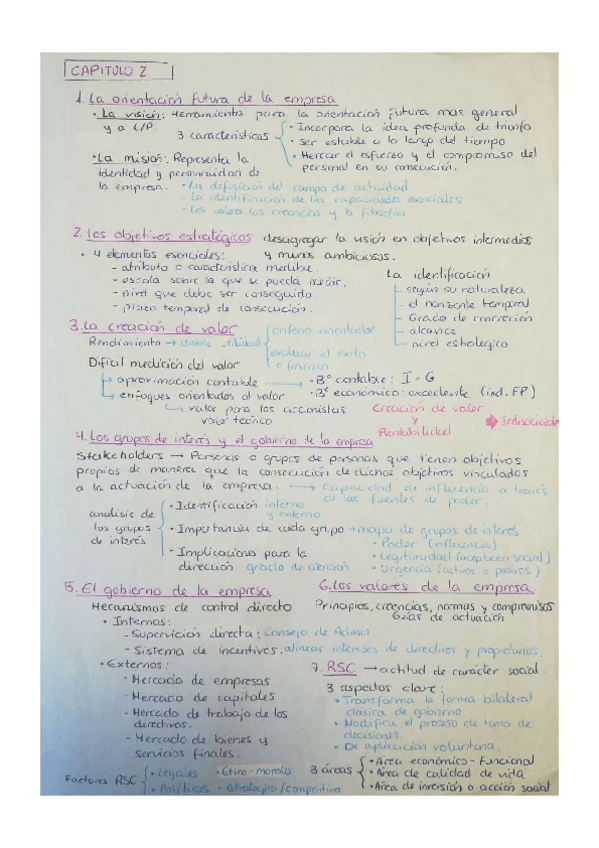 CAPITULO 2
1. La orientación futura de la empresa
• La visión: Herramienta para la orientación futura mas general
y a L/P.
3 caracteristicas
• Incorpora la idea profunda de triunfo
• Ser estable a lo largo del tiempo
• Merecer el esfuerzo y el compromiso del
personal en su consecución.
• La misión: Representa la
identidad y personalidad de
la empresa.
• La definición del campo de actividad
- La identificación de las capacidades esenciales
- Los valores, las creencias y la filosofía.
2. Los objetivos estratégicos desagregar la visión en objetivos intermedios
y menos ambiciosos.
• 4 elementos esenciales:
- atributo o característica medible.
- escala sobre la que se pueda medir.
- nivel que debe ser conseguido.
- plazo temporal de consecución.
La identificación
- según su naturaleza
- el horizonte temporal
- Grado de concreción
- alcance
- nivel estratégico
3. La creación de valor
Rendimiento → doble utilidad
criterio orientador
evaluar el éxito
o fracaso
Dificil medición del valor
→ aproximación contable → • Bº contable: I - G
→ enfoques orientados al valor • Bº económico: excedente (ind. FP)
→ valor para los accionistas
valor teórico
Creación de valor
y
Rentabilidad
→ Indisociable
4. Los grupos de interés y el gobierno de la empresa
Stakeholders → Personas o grupos de personas que tienen objetivos
propios de manera que la consecución de dichos objetivos vinculados
a la actuación de la empresa. → Capacidad de influencia a través
de las fuentes de poder.
analisis de
los grupos
de interés
• Identificación interno
y externo
• Importancia de cada grupo → mapa de grupos de interés
• Poder (influencia)
• Legitimidad (aceptación social)
• Urgencia (activos o pasivos)
- Implicaciones para la
dirección grado de atención
5. El gobierno de la empresa
Mecanismos de control directo
• Internos:
- Supervición directa: Consejo de Admon
- Sistema de incentivos: alinear intereses de directivos y propietarios.
• Externos:
- Mercado de empresas
- Mercado de capitales
- Mercado de trabajo de los
directivos.
- Mercado de bienes y
servicios finales.
6. Los valores de la empresa
Principios, creencias, normas y compromisos
Guías de actuación
7. RSC → actitud de carácter social.
3 aspectos clave:
• Transforma la forma bilateral
clásica de gobierno
• Modifica el proceso de toma de
decisiones.
• De aplicación voluntaria.
Factores RSC
• Legales • Ético-morales
• Políticos • Estratégico/competitivo
3 áreas
• Area económico-Funcional
• Area de calidad de vida
• Area de inversión o acción social